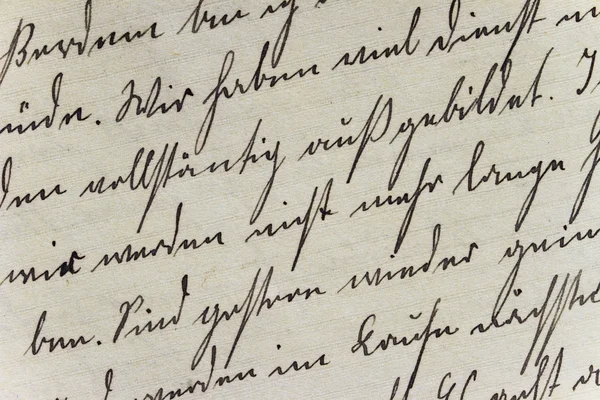 ßerdem bin ich
ünde. Wir haben viel dienst
den vollständig auß gebildet. I
wir werden nicht mehr lange
ben. Sind gestern wieder geim
werden im Laufe nächste